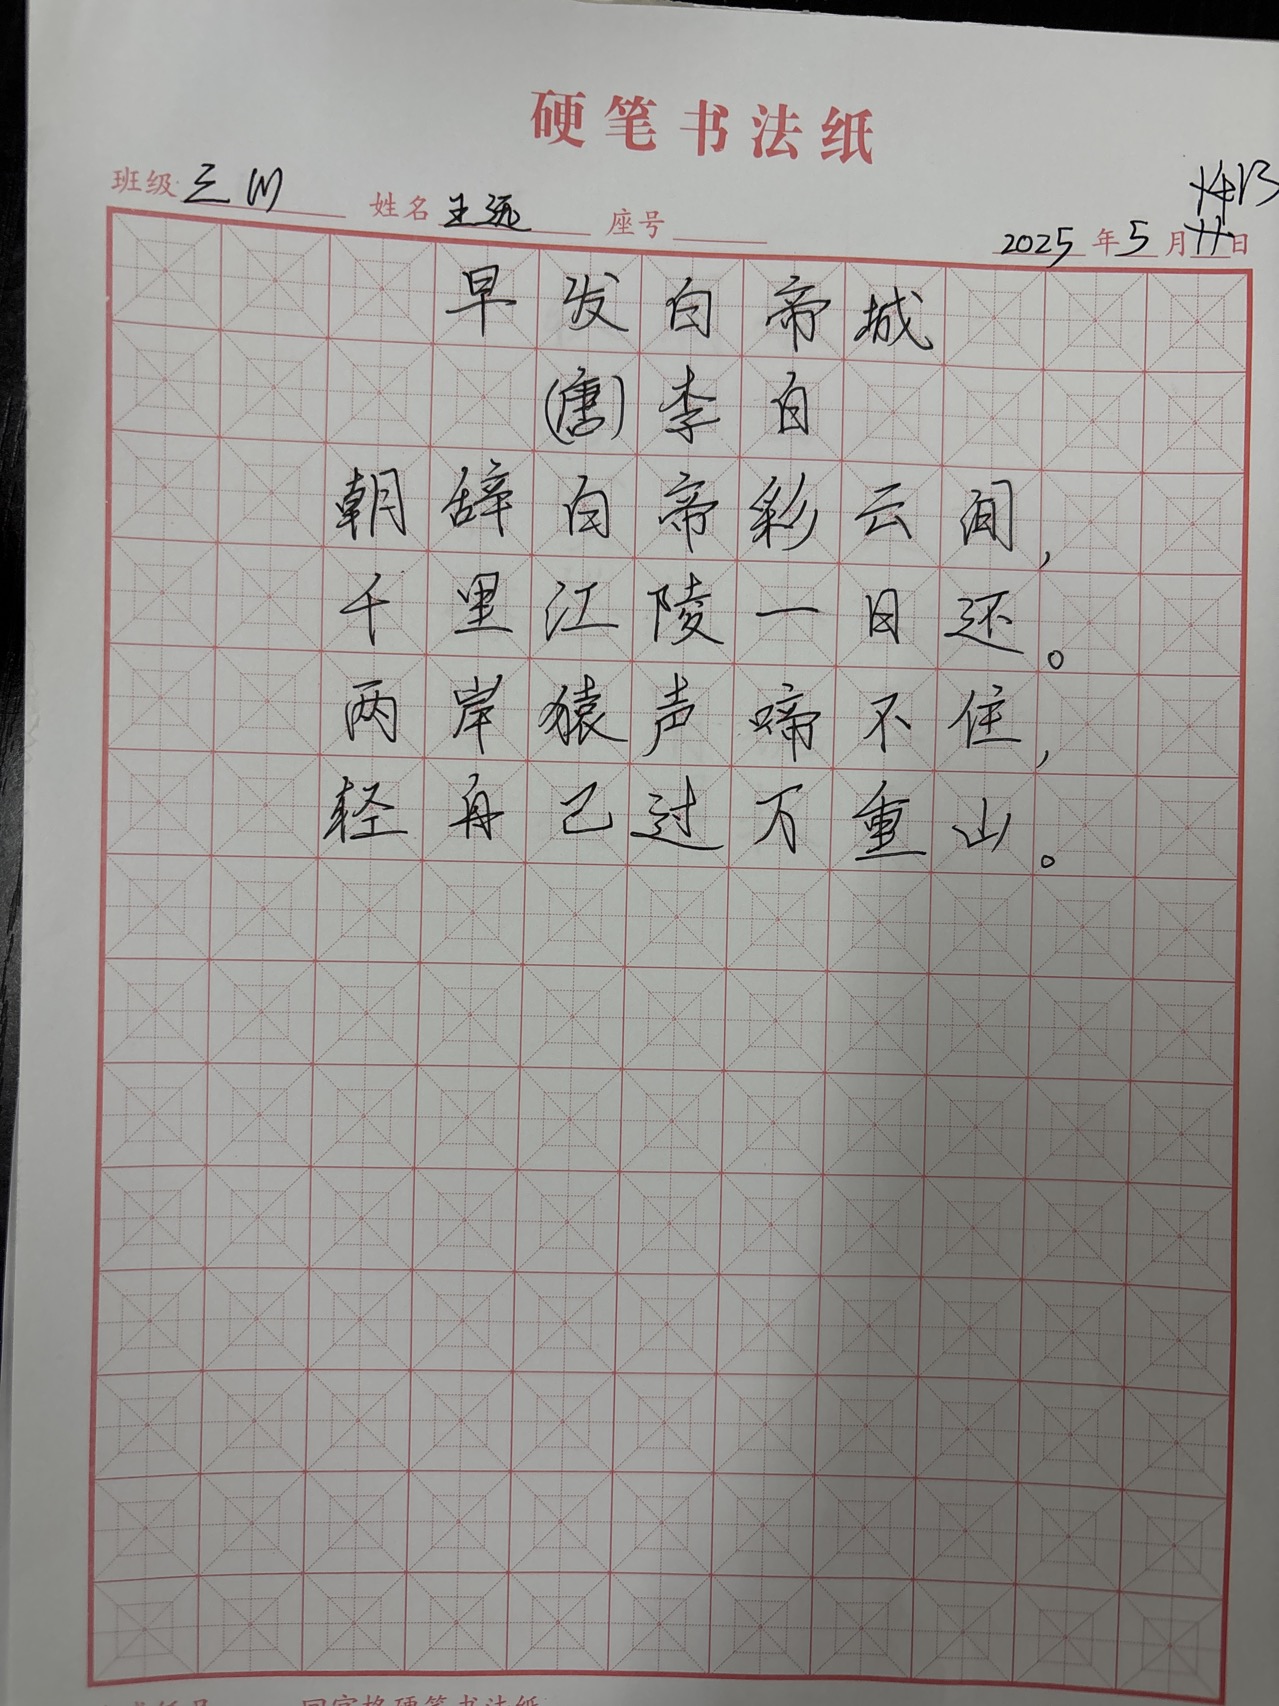 硬笔书法纸
班级 三(1) 姓名 王远 座号
2025年5月 日
早发白帝城
(唐)李白
朝辞白帝彩云间,
千里江陵一日还。
两岸猿声啼不住,
轻舟已过万重山。
回宫格硬笔书法纸